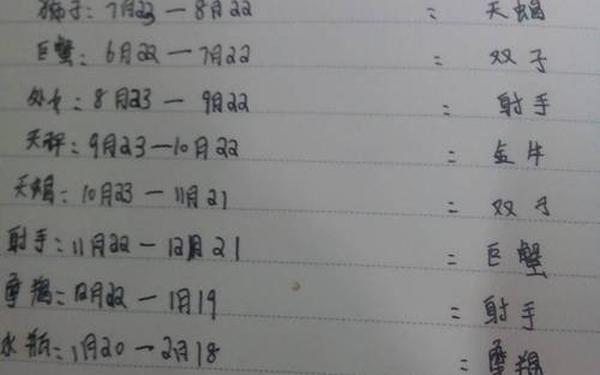 狮子: 7月23 — 8月22 : 天蝎
巨蟹: 6月22 — 7月22 : 双子
处女: 8月23 — 9月22 : 射手
天秤: 9月23 — 10月22 : 金牛
天蝎: 10月23 — 11月21 : 双子
射手: 11月22 — 12月21 : 巨蟹
摩羯: 12月22 — 1月19 : 射手
水瓶: 1月20 — 2月18 : 摩羯